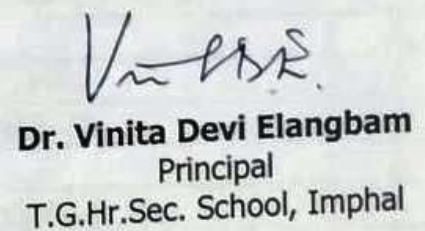 Dr. Vinita Devi Elangbam
Principal
T.G.Hr.Sec. School, Imphal